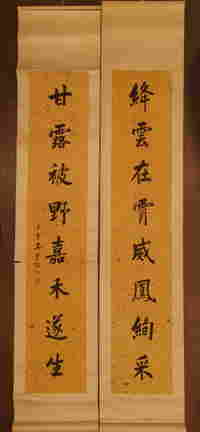 絳雲在霄威鳳絢采
甘露被野嘉禾遂生